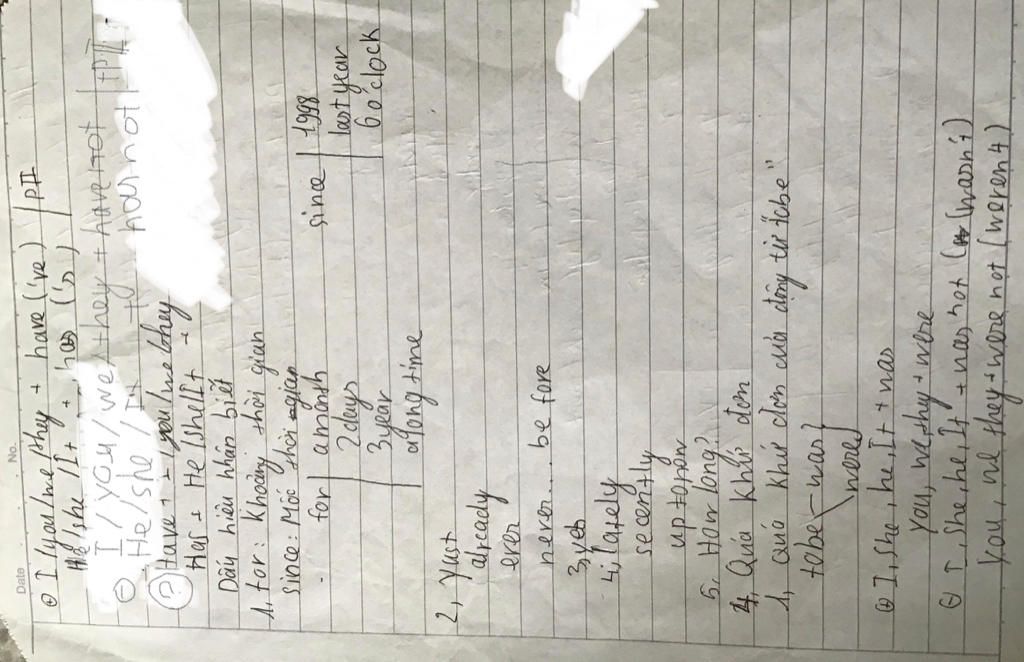 Date No.
⊕ I/you/we/they + have ('ve) | PII
He/she/It + has ('s)
⊖ I/you/we/they + have not | PII
He/she/It has not
? Have + I/you/we/they
Has + He/She/It +
Dấu hiệu nhận biết
1, for: Khoảng thời gian
since: Mốc thời gian
for | amonth since | 1998
2days last year
3year 6 o'clock
alongtime
2, Yust
already
ever
never.... be fore
3, yet
4, lately
secently
up to,now
5, How long?
4, Quá khứ đơn
1, quá khứ đơn của động từ "tobe"
tobe was
were
⊕ I, She, he, It + was
you, we, they + were
⊖ I, She, he, It + was not (wasn't)
You, we they + were not (weren't)